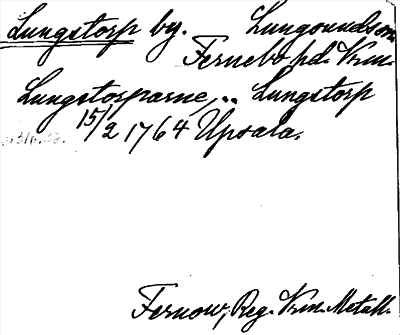 Lungstorp by. Lungsundsom
Fernebo hd. Krm.
Lungstorparne, .. Lungstorp
15/2 1764 Upsala.
Fernow, Reg. Krm. Metall.